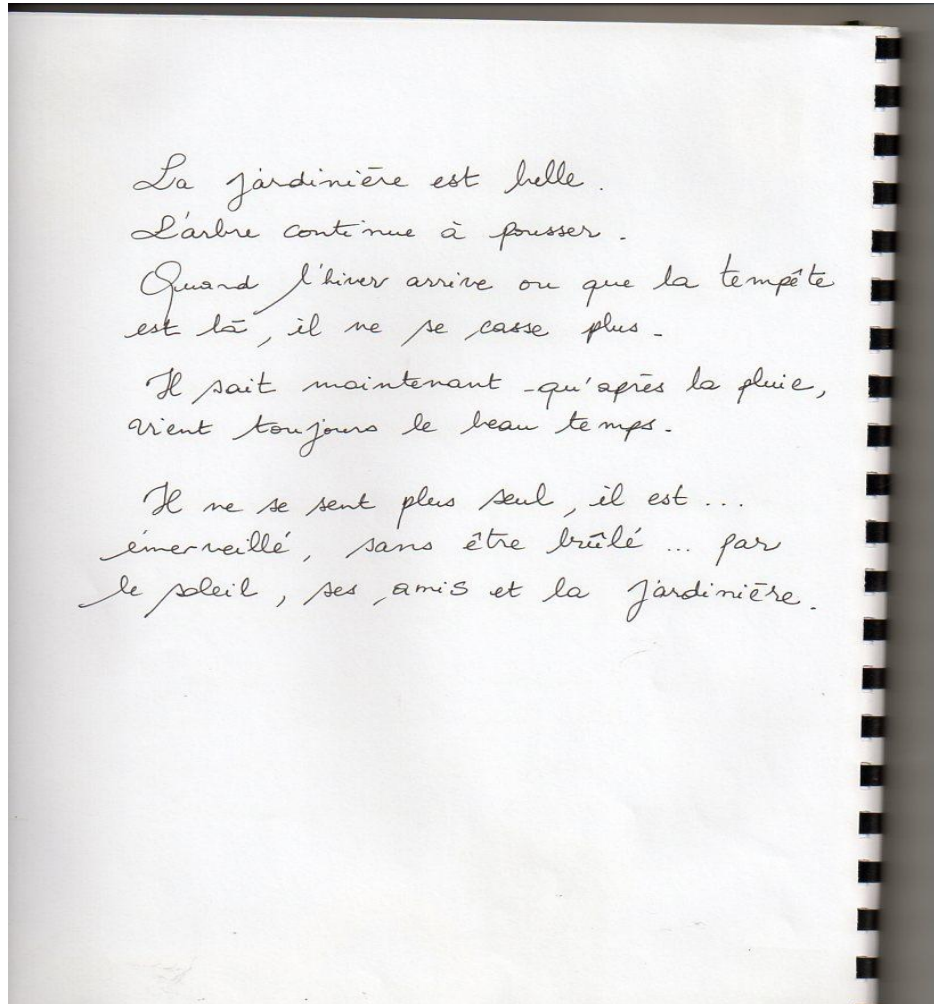 La jardinière est belle.
L'arbre continue à pousser.
Quand l'hiver arrive ou que la tempête
est là, il ne se casse plus.
Il sait maintenant qu'après la pluie,
vient toujours le beau temps.
Il ne se sent plus seul, il est...
émerveillé, sans être brûlé... par
le soleil, ses amis et la jardinière.